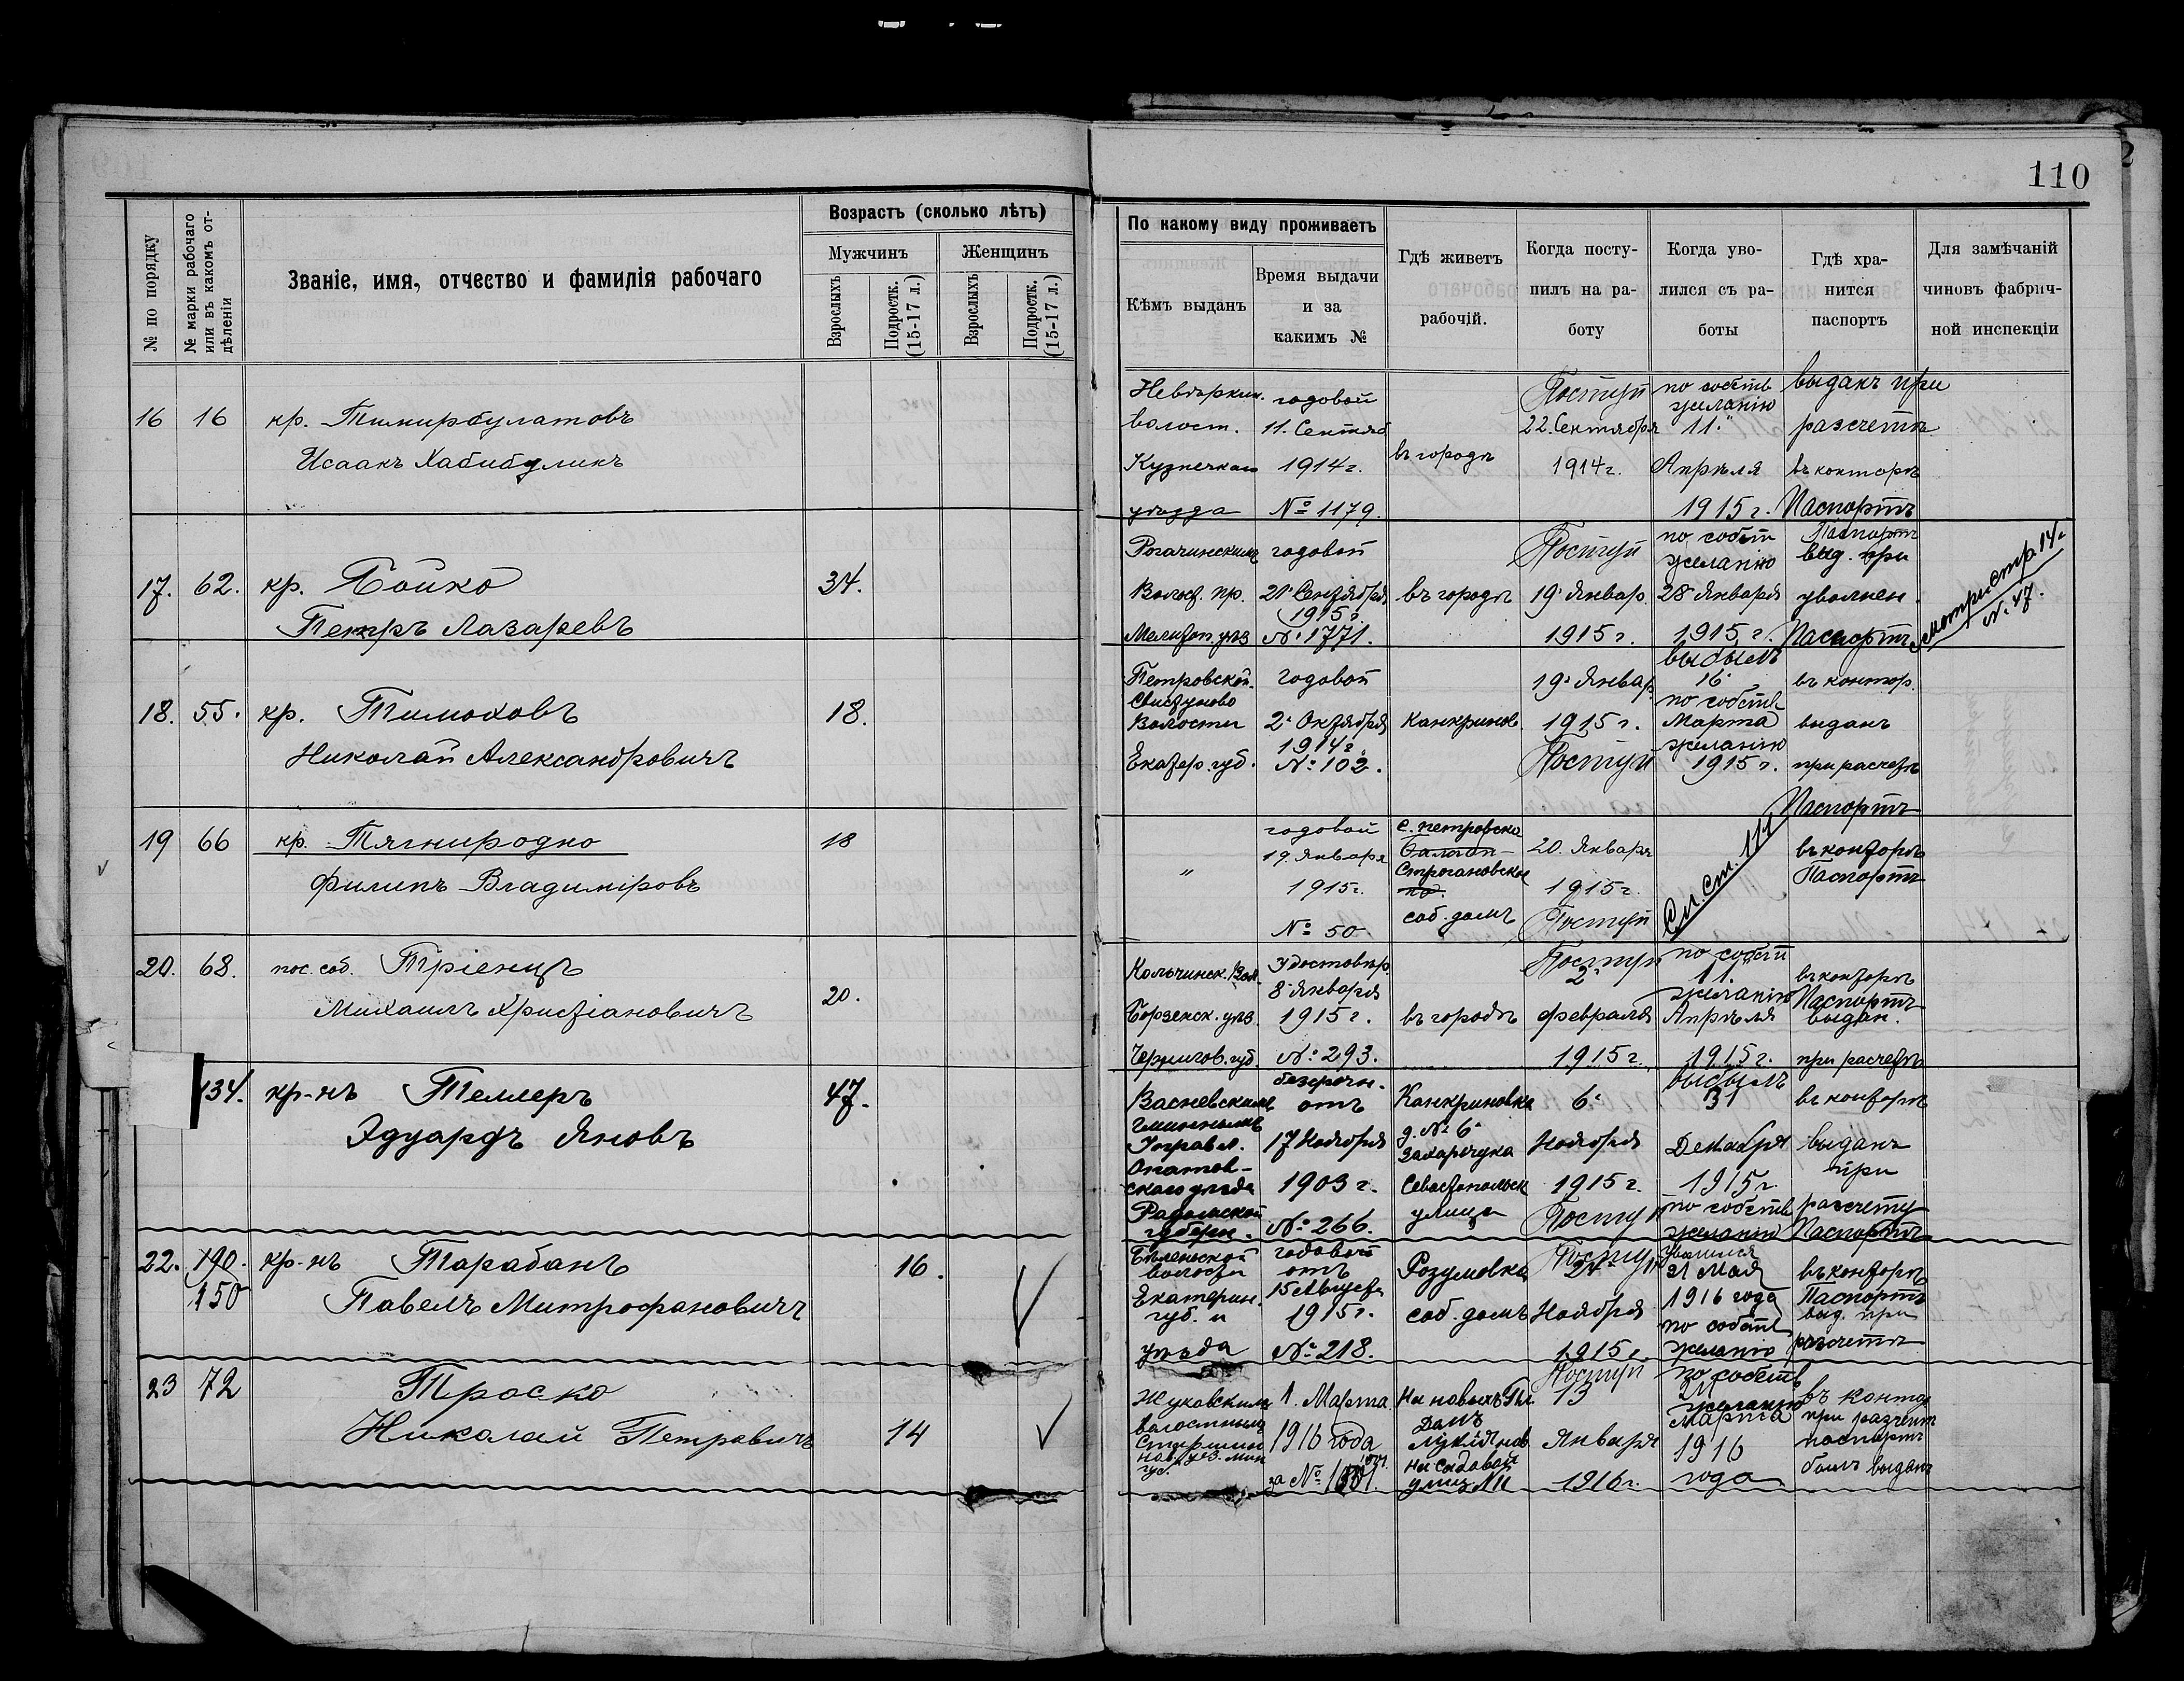 110
№ по порядку
№ марки рабочаго или въ какомъ отдѣленіи
Званіе, имя, отчество и фамилія рабочаго
Возрастъ (сколько лѣтъ)
Мужчинъ
Женщинъ
Взрослыхъ
Подростк. (15-17 л.)
Взрослыхъ
Подростк. (15-17 л.)
По какому виду проживаетъ
Кѣмъ выданъ
Время выдачи
и за
какимъ №
Гдѣ живетъ
рабочій.
Когда посту-
пилъ на ра-
боту
Когда уво-
лился съ ра-
боты
Гдѣ хра-
нится
паспортъ
Для замѣчаній
чиновъ фабрич-
ной инспекціи
16 16 кр. Тимирбулатовъ
Исаакъ Хабибулинъ
Невѣркин.
волост.
Кузнечкаго
уѣзда
годовой
11. Сентяб
1914 г.
№ 1179.
въ городѣ
Поступ
22. Сентября
1914 г.
по собств
желанію
11.
Апрѣля
1915 г.
выданъ при
разсчетѣ
въ конторѣ
Паспортъ
17. 62. кр. Бойко 34.
Петръ Лазаревъ
Рогачинскимъ
Волост. пр.
Мелитоп. уѣз
годовой
21. Сентября
1915 г.
№ 1771.
въ городѣ
Поступ
19. Январ.
1915 г.
по собств
желанію
28 Января
1915 г.
Паспортъ
выд. при
уволнен.
Паспортъ
смотри стр. 14.
№ 47.
18. 55. кр. Тимоховъ 18.
Николай Александровичъ
Петровской.
Свистуново
Волости
Екатер. губ.
годовой
2. Октября
1914 г.
№ 102.
Канкринов
19. Январ
1915 г.
Поступ
выбылъ
16
по собств
Марта
желанію
1915 г.
въ контор.
выданъ
при расчетѣ
Паспортъ
19 66 кр. Тягнирядно 18
Филипъ Владиміровъ
"
годовой
19. Января
1915 г.
№ 50
с. петровско
Строгановское
соб. домъ
20. Января
1915 г.
Поступ
См. ст. 111
въ конторѣ
Паспортъ
20. 68. пос. соб. Тріенцъ 20.
Михаилъ Христіановичъ
Кольчинск. Вол.
Борзенск. уѣз.
Чернигов. губ.
Удостовѣр.
8. Января
1915 г.
№ 293.
въ городѣ
Поступ
2.
Февраля
1915 г.
по собств
11.
желанію
Апрѣля
1915 г.
въ конторѣ
Паспортъ
выдан.
при расчетѣ
134. кр-нъ Теллеръ 47.
Эдуардъ Яновъ
Васневскимъ
Гминнымъ
Управл.
Опатов-
скаго уѣзда
Радомской
губерн.
безрочн.
отъ
17 Ноября
1903 г.
№ 266.
Канкриновка
д. № 6
Захарчука
Севастопольск
улица
6.
Ноября
1915 г.
Поступ
выбылъ
31
Декабря
1915 г.
по собств
желанію
въ конторѣ
выданъ
при
разсчету
Паспортъ
22. 190. кр-нъ Тарабанъ 16.
150 Павелъ Митрофановичъ
Бѣленьской
волости
Екатерин.
губ. и
уѣзда
годовой
отъ
15 Августа
1915 г.
№ 218.
Розумовка
соб. домъ
Поступ
Ноября
1915 г.
уволился
21 Мая
1916 года
по собств
желанію
въ конторѣ
Паспортъ
выд. при
разсчетѣ
23 72 Траско
Николай Петровичъ 14
Жуковскимъ
волостнымъ
Старшино
губ.
1. Марта
1916 года
за №
На новыхъ
на Садовой
улиц. № 11
Поступ
13
Января
1916 г.
по собств
желанію
Марта
1916
года
въ конто
при разчетѣ
паспортъ
былъ выданъ